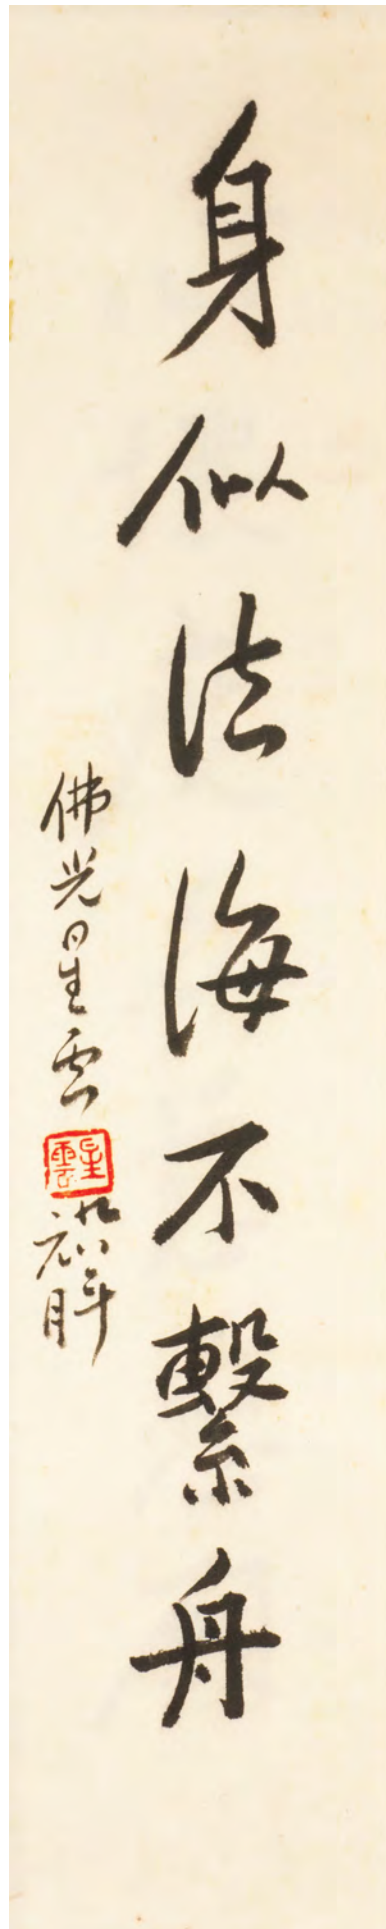 身似法海不繫舟
佛光星雲
星雲
九八年
元月